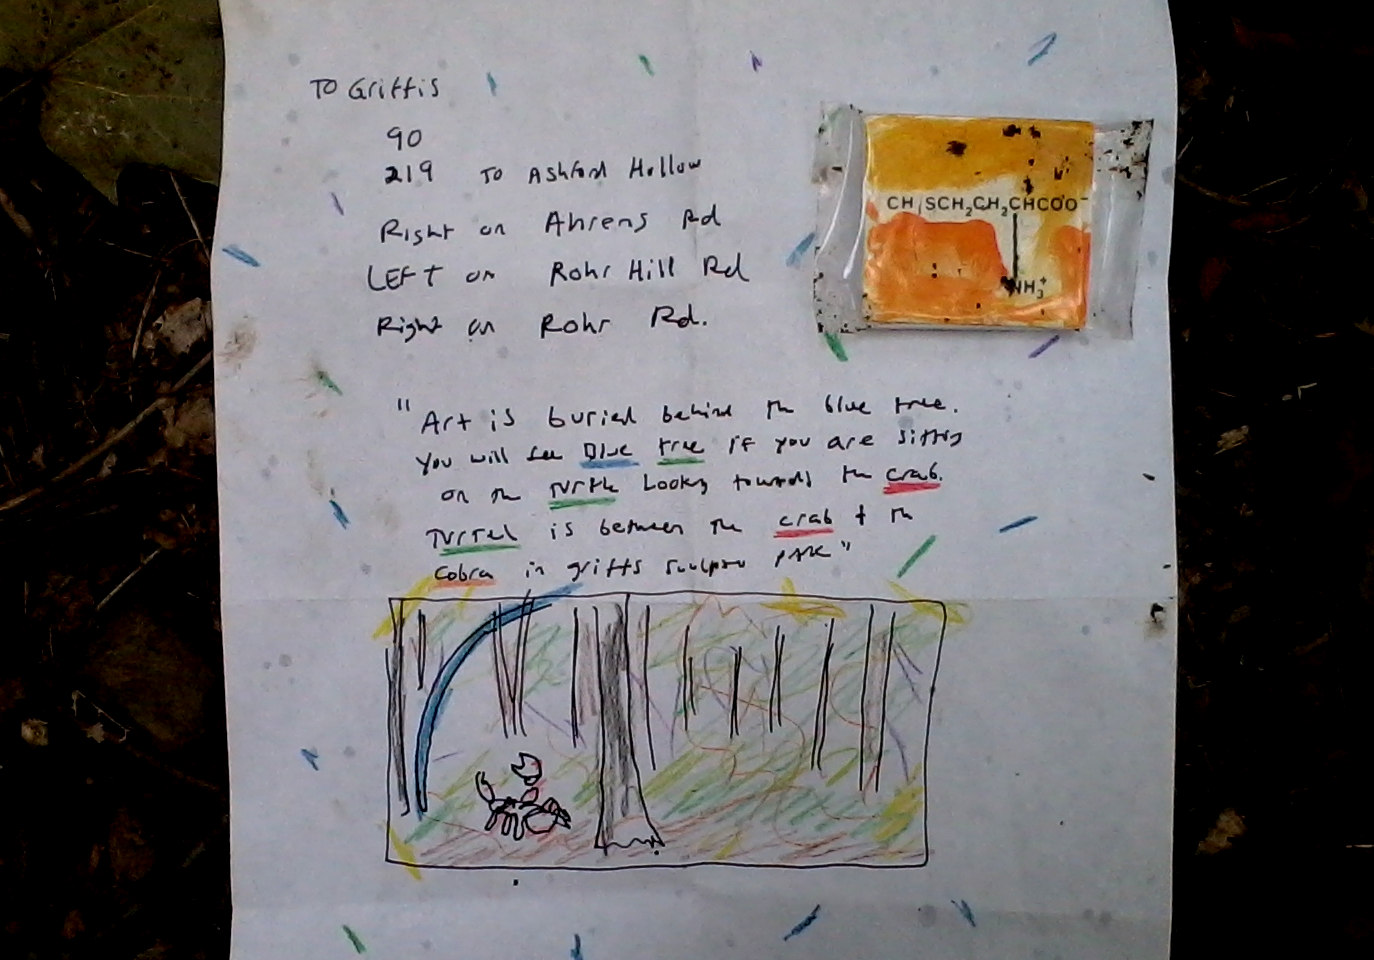 To Griffis
90
219 To Ashford Hollow
Right on Ahrens Rd
LEFT on Rohr Hill Rd
Right on Rohr Rd.
CH SCH₂CH₂CHCOO⁻
NH₃⁺
"Art is buried behind th blue tree.
You will see Blue tree if you are sitting
on the Turtle looking towards the crab.
Turtel is between the crab + th
Cobra in griffs sculpture park"